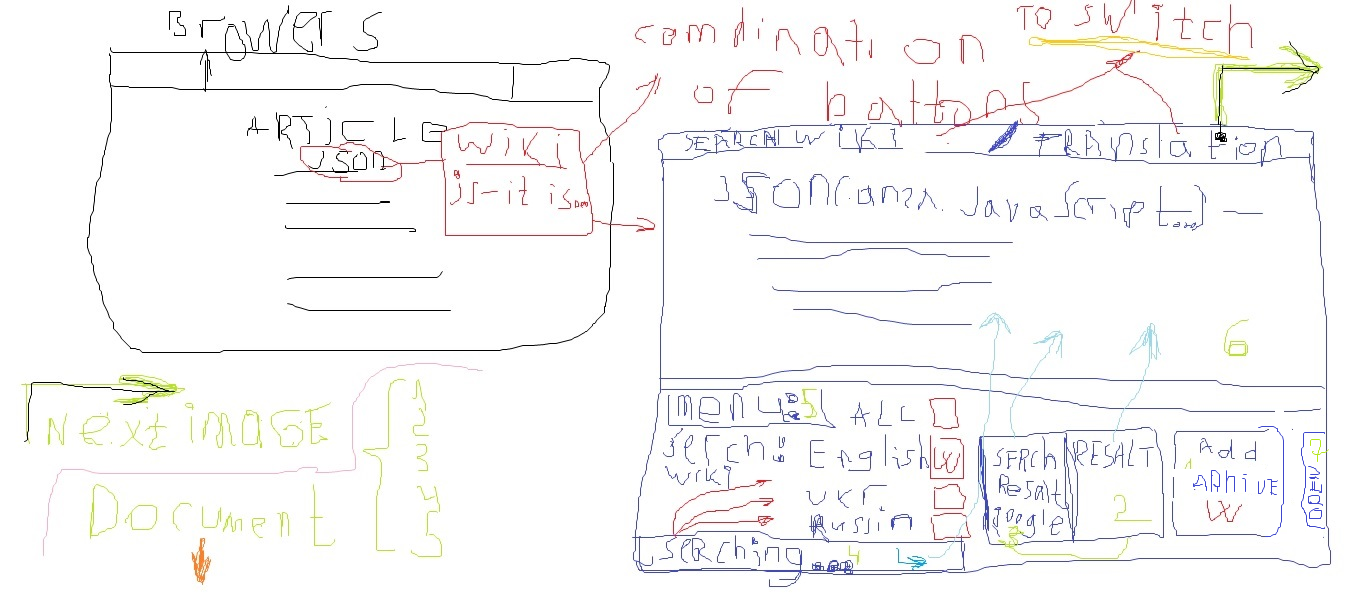 Browers
ARTJCLE
JSon
WiKI
js-it is...
combination
of buttons
TO SWitch
SEARCH WIKI
TRAnslation
JSON(.anzn. JavaScript...) —
6
menu: 5
ALL
serch:
wiki
English W
UKr
Russin
serching ... 4
SERCh
Resalt
google
3
RESALT
2
Add
1
ARhiVE
W
7
Next imAGE
Document
1
2
3
4
5